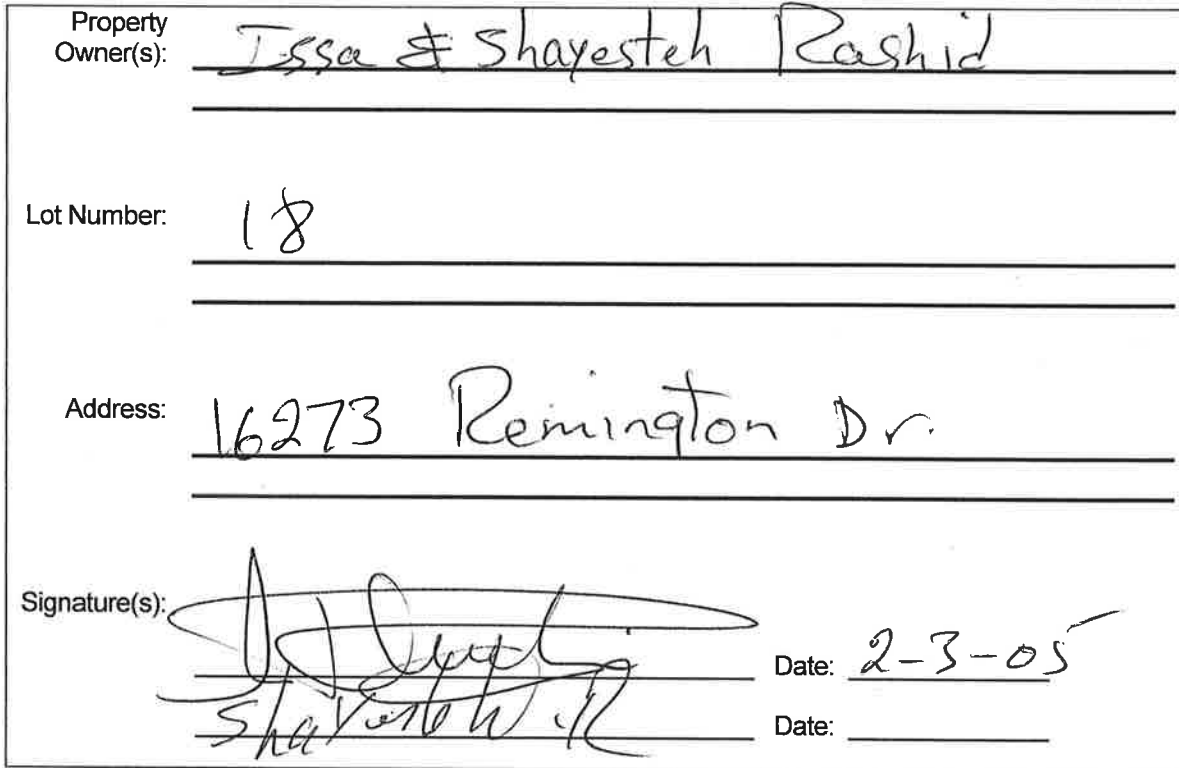 Property
Owner(s): Issa & Shayesteh Rashid
Lot Number: 18
Address: 16273 Remington Dr.
Signature(s):
Date: 2-3-05
Shayesteh .R
Date: